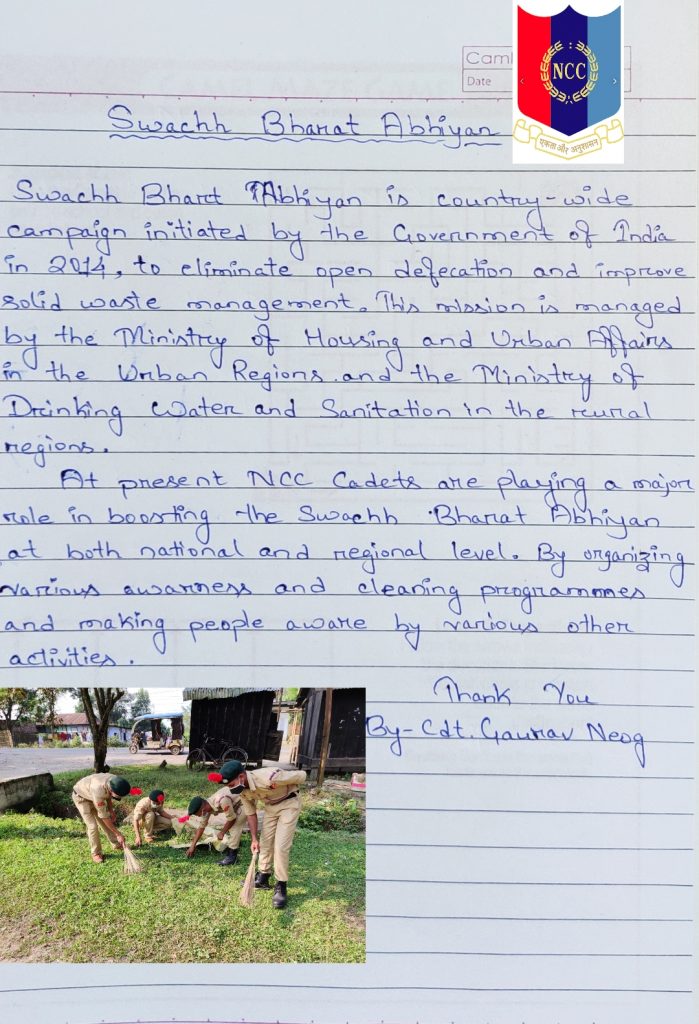 Caml
Date
NCC
एकता और अनुशासन
Swachh Bharat Abhiyan
Swachh Bharct Abhiyan is country-wide
campaign initiated by the Government of India
in 2014, to eliminate open defecation and improve
solid waste management. This mission is managed
by the Ministry of Housing and Urban Affairs
in the Urban Regions and the Ministry of
Drinking Water and Sanitation in the rural
regions.
At present NCC Cadets are playing a major
role in boosting the Swachh Bharat Abhiyan
at both national and regional level. By organizing
various awarness and cleaning programmes
and making people aware by various other
activities.
Thank You
By- Cdt. Gaurav Neog